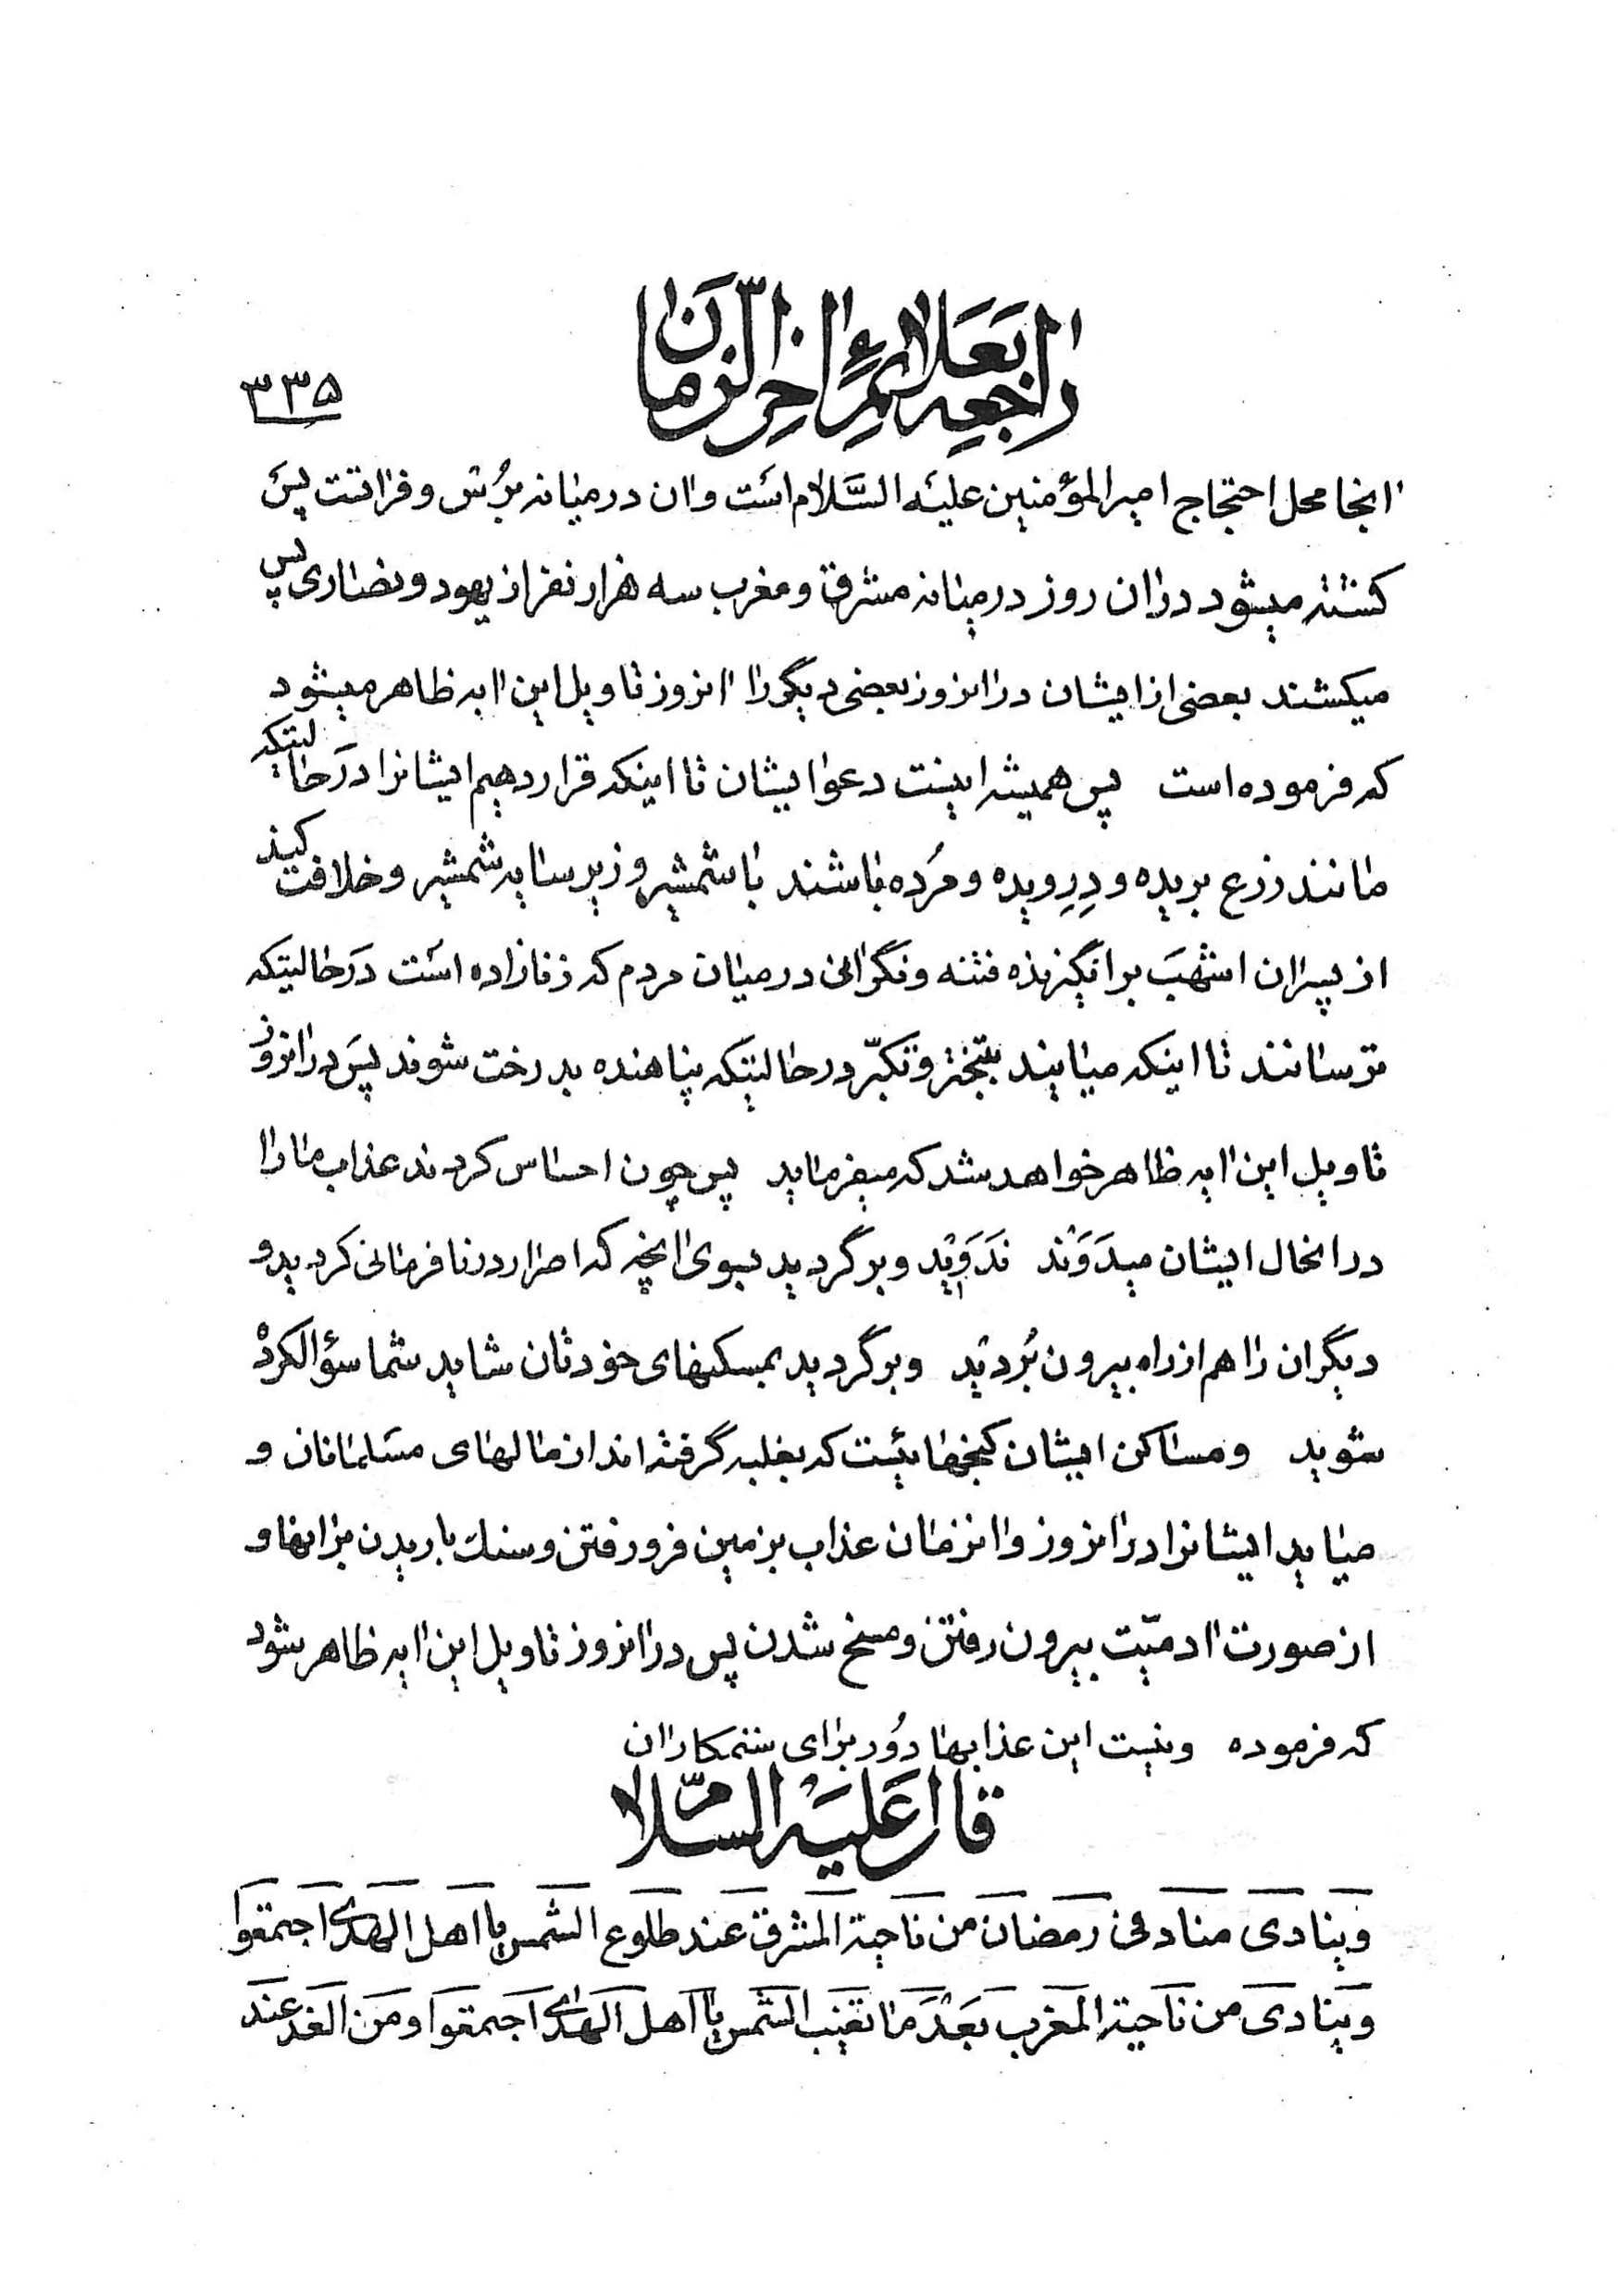 راجعه بعلائم اخر الزمان
۳۳۵
انجا محل احتجاج امیر المؤمنین علیه السَّلام است وان در میانه بُرس و فراتست پس
کشته میشود دران روز در میانه مشرق و مغرب سه هزار نفر از یهود و نصاری پس
میکشند بعضی از ایشان در انروز بعضی دیگر را انروز تاویل این ایه ظاهر میشود
که فرموده است پس همیشه اینست دعوا ایشان تا اینکه قرار دهیم ایشانرا درحالتیکه
مانند زرع بریده و دِرِویده و مُرده باشند با شمشیر و زیر سایه شمشیر و خلافت کند
از پسران اشهَب برانگیزنده فتنه و نگرانی در میان مردم که زنازاده است درحالیتکه
ترسانند تا اینکه میایند بتبختر و تکبّر درحالتیکه پناهنده بدرخت شوند پس در انروز
تاویل این ایه ظاهر خواهد شد که میفرماید پس چون احساس کردند عذاب ما را
در انحال ایشان میدَوَند ندَوَید و برگردید بسوی انچه که اصرار در نافرمانی کردید و
دیگران را هم از راه بیرون بُردید و برگردید بمسکنهای خودتان شاید شما سؤالکرده
شوید و مساکن ایشان گنجهائیست که بغلبه گرفته اند از مالهای مسلمانان و
میاید ایشانرا در انروز و انزمان عذاب بزمین فرو رفتن و سنك باریدن بر انها و
از صورت ادمیّت بیرون رفتن و مسخ شدن پس در انروز تاویل این ایه ظاهر شود
که فرموده ونیست این عذابها دُور برای ستمکاران
قال عَلَیْه السّلام
وینادی مناد فی رمضان من ناحیة المشرق عند طلوع الشمس یا اهل الهدی اجتمعوا
وینادی من ناحیة المغرب بَعْدَ مَا تغیب الشمس یا اهل الهدی اجتمعوا ومن الغد عند